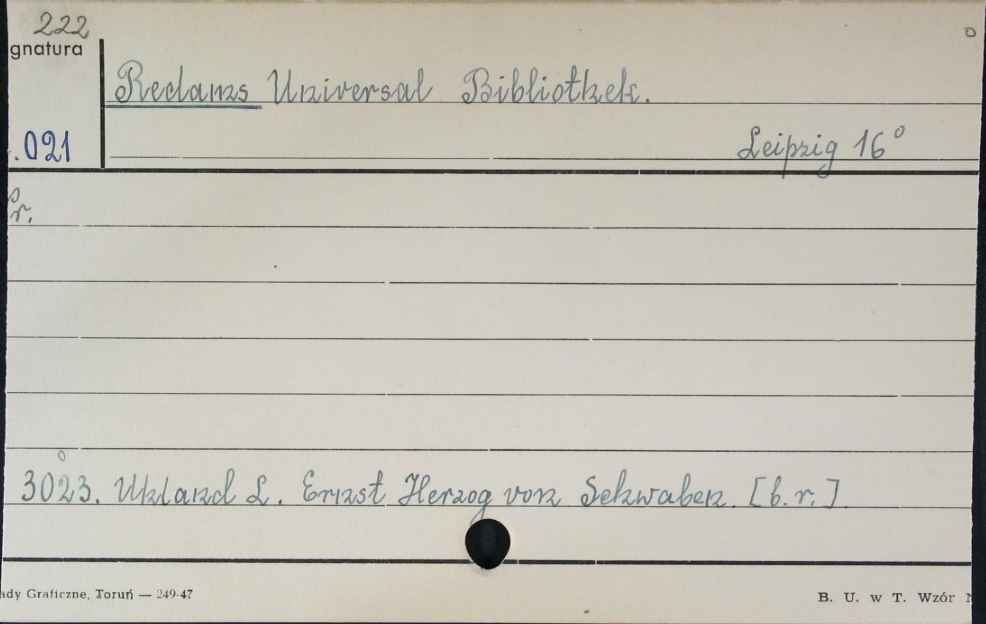 222
gnatura
Reclams Universal Bibliothek.
.021
Leipzig 16°
r.
3023. Uhland L. Ernst Herzog von Schwaben. [b.r.]
ady Graficzne, Toruń — 249-47
B. U. w T. Wzór